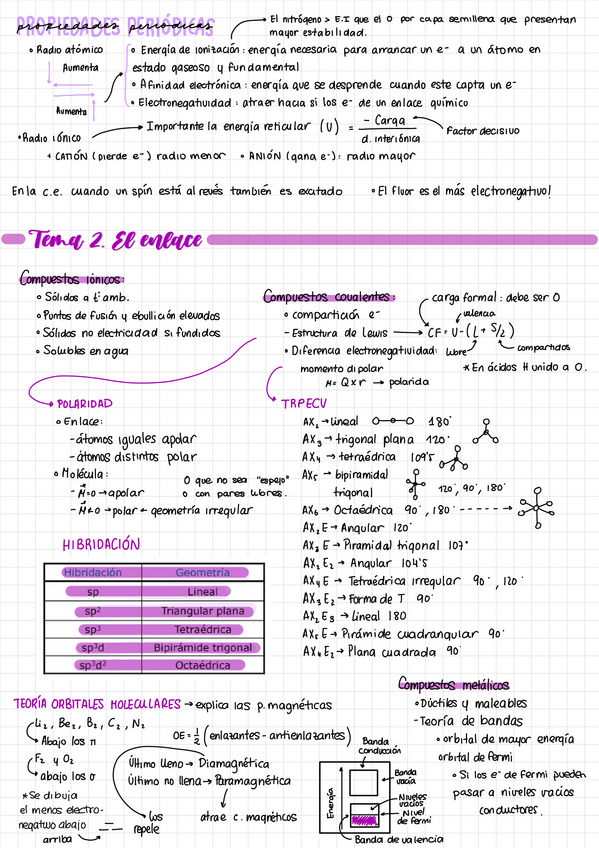 propiedades periódicas
PROPIEDADES PERIÓDICAS
→ El nitrógeno > E.I que el O por capa semillena que presentan
mayor estabilidad.
• Radio atómico
Aumenta
Aumenta
• Energía de ionización: energía necesaria para arrancar un e⁻ a un átomo en
estado gaseoso y fundamental
• Afinidad electrónica: energía que se desprende cuando este capta un e⁻
• Electronegatividad: atraer hacia si los e⁻ de un enlace químico
• Radio iónico → Importante la energía reticular (U) = - Carga / d. interiónica
Factor decisivo
+ CATIÓN (pierde e⁻) radio menor • ANIÓN (gana e⁻): radio mayor
En la c.e. cuando un spín está al revés también es excitado • El fluor es el más electronegativo!
Tema 2. El enlace
Compuestos iónicos:
• Sólidos a tª amb.
• Puntos de fusión y ebullición elevados
• Sólidos no electricidad si fundidos
• Solubles en agua
Compuestos covalentes:
• compartición e⁻
- Estructura de Lewis → CF = V - (L + S/2)
carga formal: debe ser 0
valencia
libre
compartidos
• Diferencia electronegatividad:
momento dipolar
M = Q x r → polarida
* En ácidos H unido a O.
→ POLARIDAD
• Enlace:
- átomos iguales apolar
- átomos distintos polar
• Molécula:
- M⃗=0 → apolar
- M⃗≠0 → polar ← geometría irregular
O que no sea "espejo"
o con pares libres.
TRPECV
AX₂ → lineal 180°
AX₃ → trigonal plana 120°
AX₄ → tetraédrica 109'5
AX₅ → bipiramidal
trigonal 120°, 90°, 180°
AX₆ → Octaédrica 90°, 180°
AX₂E → Angular 120°
AX₃E → Piramidal trigonal 107°
AX₂E₂ → Angular 104'5
AX₄E → Tetraédrica irregular 90°, 120°
AX₃E₂ → Forma de T 90°
AX₂E₃ → lineal 180
AX₅E → Pirámide cuadrangular 90°
AX₄E₂ → Plana cuadrada 90°
HIBRIDACIÓN
Hibridación Geometría
sp Lineal
sp² Triangular plana
sp³ Tetraédrica
sp³d Bipirámide trigonal
sp³d² Octaédrica
TEORÍA ORBITALES MOLECULARES → explica las p. magnéticas
Li₂, Be₂, B₂, C₂, N₂
→ Abajo los π
F₂ y O₂
→ abajo los σ
* Se dibuja
el menos electro-
negativo abajo
arriba
OE = 1/2 (enlazantes - antienlazantes)
Último lleno → Diamagnética
Último no llena → Paramagnética
los
repele
atrae c. magnéticos
Compuestos metálicos
• Dúctiles y maleables
- Teoría de bandas
• orbital de mayor energía
orbital de Fermi
• Si los e⁻ de fermi pueden
pasar a niveles vacíos
conductores.
Banda
conducción
Banda
vacía
Energía
Niveles
vacíos
Nivel
de fermi
Banda de valencia